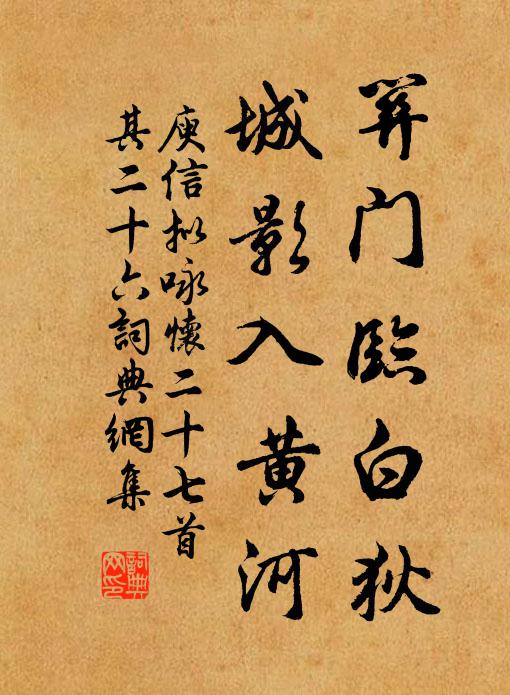 關门臨白狄
城影入黄河
庾信拟咏懷二十七首
其二十六詞典網集
詞典
网印